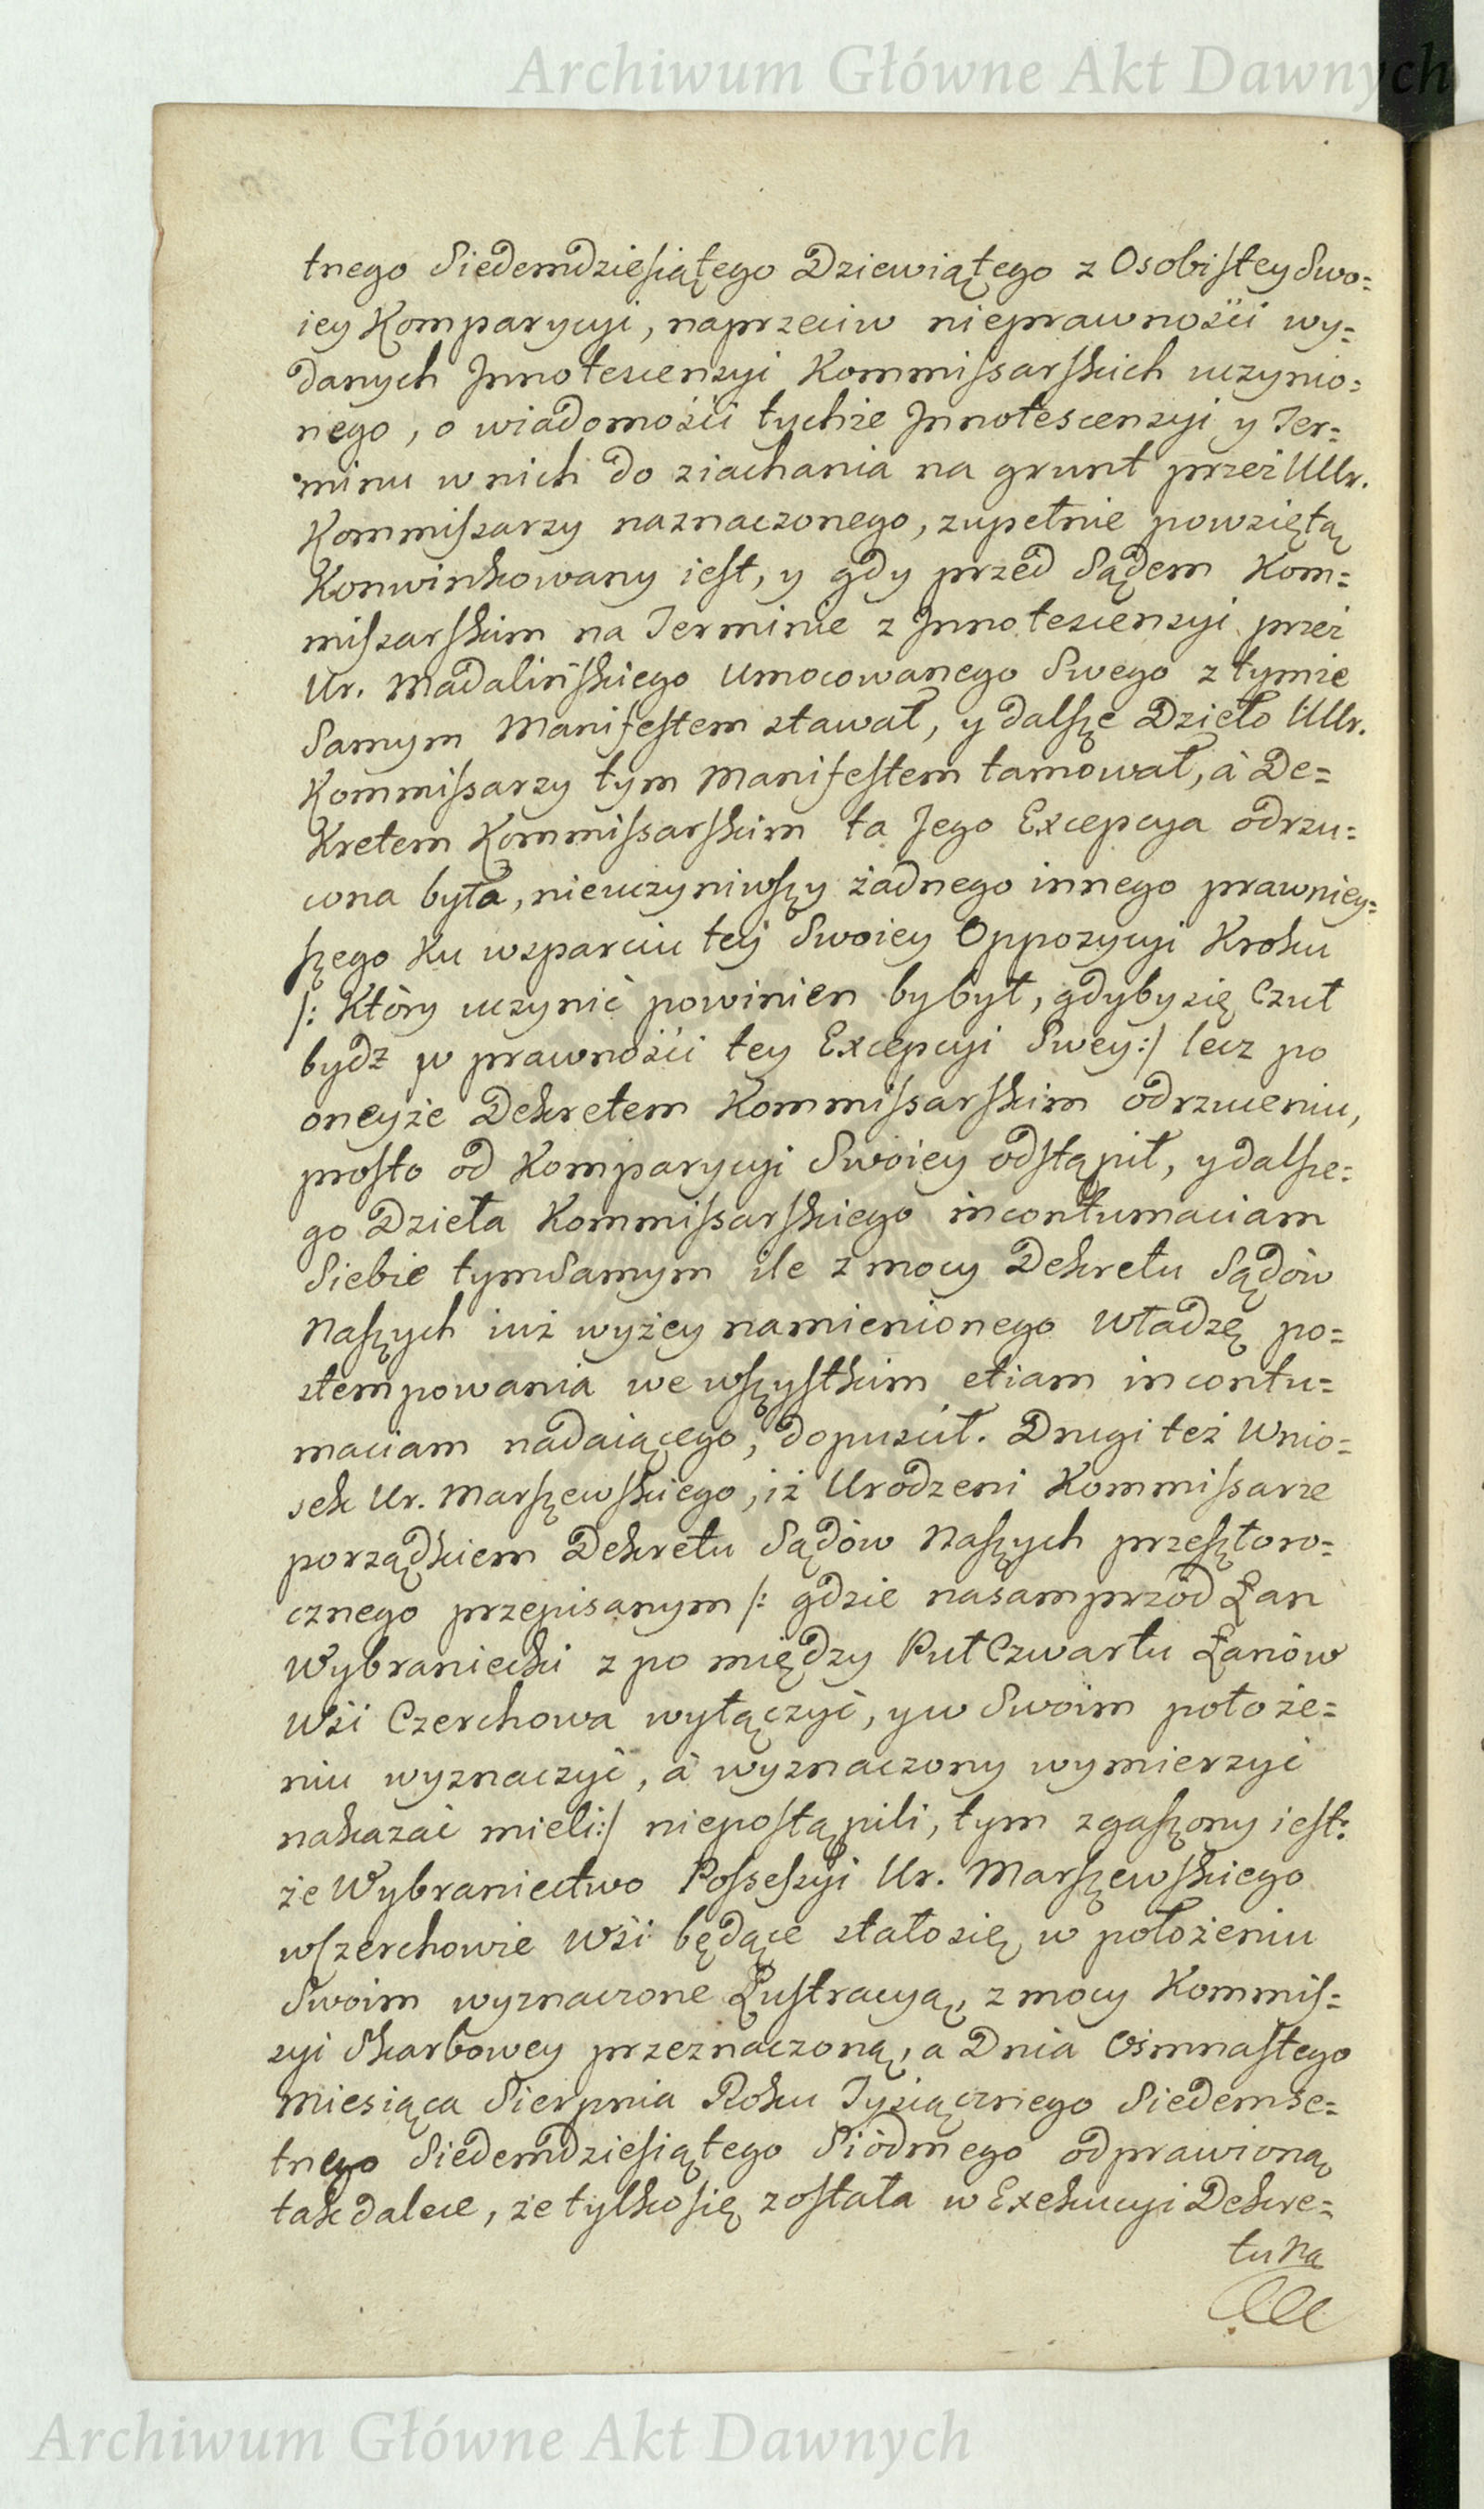 Archiwum Główne Akt Dawnych
tnego Siedemdziesiątego Dziewiątego z Osobistey Swo=
iey Komparycyi, naprzeciw nieprawności wy=
danych Innotescencyi Kommissarskich uczynio=
nego, o wiadomości tychże Innotescencyi y Ter=
minu w nich do ziachania na grunt przez UUr.
Kommissarzy naznaczonego, zupełnie powziętą
Konwinkowany iest, y gdy przed Sądem Kom=
missarskim na Terminie z Innotescencyi przez
Ur. Madalińskiego Umocowanego Swego z tymże
Samym Manifestem stawał, y dalsze Dzieło UUr.
Kommissarzy tym Manifestem tamował, à De=
kretem Kommissarskim ta Jego Excepcya odrzu=
cona była, nieuczyniwszy żadnego innego prawniey=
szego ku wsparciu tey Swoiey Oppozycyi Kroku
/: Który uczynić powinien bybył, gdyby się Czuł
bydz w prawności tey Excepcyi Swey:/ lecz po
oneyże Dekretem Kommissarskim odrzuceniu,
prosto od Komparycyi Swoiey odstąpił, y dalsze=
go Dzieła Kommissarskiego incontumaciam
Siebie tymsamym ile z mocy Dekretu Sądów
Naszych iuż wyżey namienionego Władzę po=
stempowania we wszystkim etiam incontu=
maciam nadaiącego, dopuscił. Drugi też Wnio=
sek Ur. Marszewskiego, iż Urodzeni Kommissarze
porządkiem Dekretu Sądów Naszych przeszłoro=
cznego przepisanym /: gdzie nasamprzód Łan
Wybraniecki z po między Puł Czwartu Łanów
Wsi Czerchowa wyłączyć, y w Swoim położe=
niu wyznaczyć, à wyznaczony wymierzyć
nakazać mieli:/ niepostąpili, tym zgaszony iest:
że Wybraniectwo Possessyi Ur. Marszewskiego
w Czerchowie Wsi będące stało się w położeniu
Swoim wyznaczone Lustracyą, z mocy Kommis=
syi Skarbowey przeznaczoną, a Dnia Osmnastego
Miesiąca Sierpnia Roku Tysiącznego Siedemse=
tnego Siedemdziesiątego Siódmego odprawioną
tak dalece, że tylko się została w Exekucyi Dekre=
tu Na
Archiwum Główne Akt Dawnych